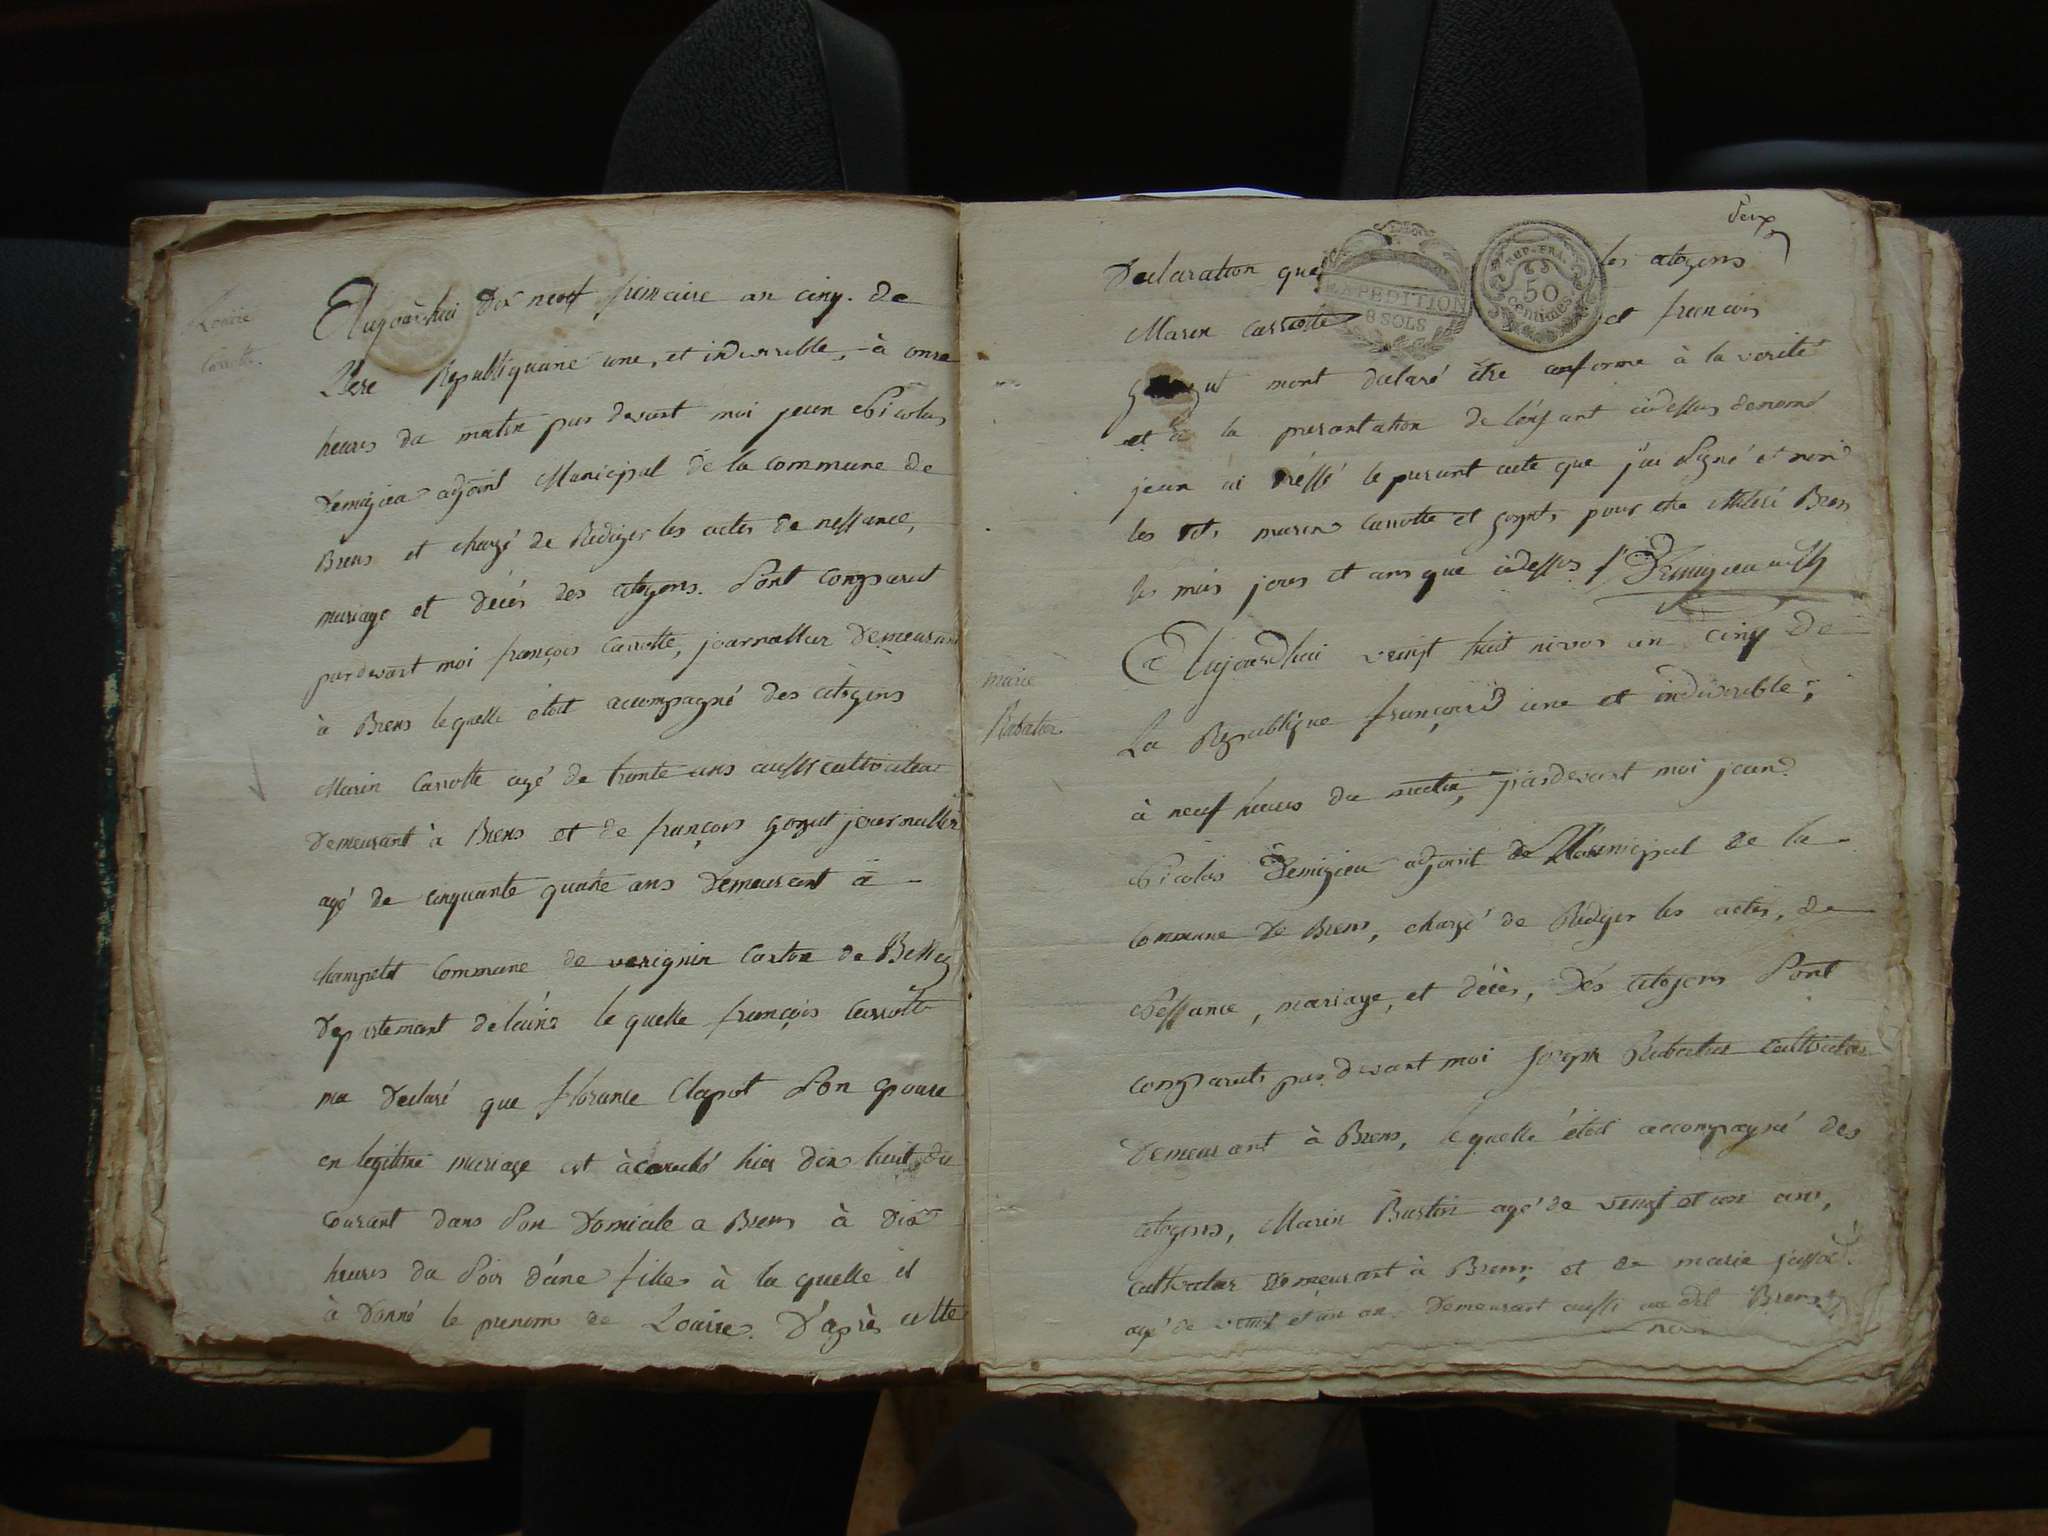 Louise
Carrotte
Aujourdhui Dix neuf frimaire an cinq. de
L'ere Republiquaine une, et indivisible, à onze
heures du matin par devant moi jean Nicolas
Demigieu adjoint Municipal de la commune de
Brens et chargé de Rediger les actes de nessance,
mariage et décés des citoyens. Sont comparut
pardevant moi françois Carrotte, journallier Demeurant
à Brens lequelle étoit accompagné des citoyens
Marin Carrotte agé de trente ans aussi cultivateur
Demeurant à Brens et de françois gozut journallier
agé de cinquante quatre ans Demeurant à
champetel Commune de verignin Canton de Belley
Departemant de lain lequelle françois Carrotte
ma Declaré que florance Clapot Son epouse
en legitime mariage est àcouché hier dix huit du
courant dans Son Domicile a Brens à Dix
heures du Soir d'une fille à la quelle il
à Donné le prenom de Louise. D'après cette
deux
EXPEDITION
8 SOLS
REP. FRA.
50
Centimes
Declaration que les citoyens
Marin Carrotte et francois
gozut mont declaré être conforme à la verité
et à la presantation de lenfant cidessus denomé
jean ai dréssé le presant acte que j'ai Signé et non
les dts marin Carrotte et gozut, pour être illitéré Brens
les mois jours et ans que cidessus Demigieu adjt
Marie
Rabatier
Aujourdhui veingt huit nivos an cinq De
La Republique françoise une et indivisible,
à neuf heures du matin, pardevant moi jean
Nicolas Demigieu adjoint de Municipal de la
commune de Brens, chargé de Rédiger les actes, de
Nessance, mariage, et décès, Des citoyens Sont
comparuts par devant moi Joseph Rabatier cultivateur
Demeurant à Brens, lequelle étoit accompagné des
citoyens, Marin Bustin agé de veingt et un ans,
cultivateur Demeurant à Brens, et de marie
agé de veint et un an Demeurant aussi au dit Brens